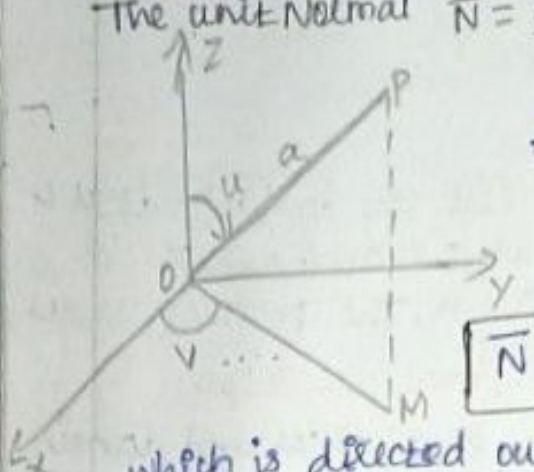 The unit Normal N̅ =
Z
P
a
u
O
Y
V ....
N̅
M
which is directed ou